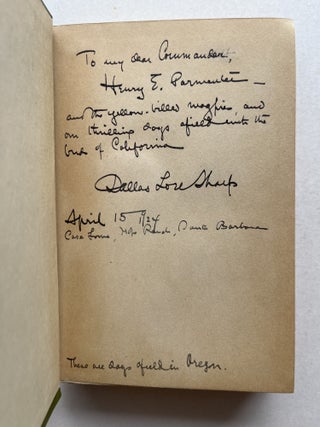 To my dear Commander,
Henry E. Parmenter —
and the yellow-billed magpies and
our thrilling days afield with the
birds of California
Dallas Lore Sharp
April 15 1924
Casa Loma, Hope Ranch, Santa Barbara
These are days afield in Oregon.